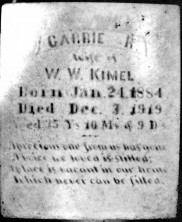 CARRIE
Wife of
W. W. KIMEL
Born Jan. 24, 1884
Died Dec. 3, 1919
Aged 35 Ys 10 Ms & 9 Ds
A precious one from us has gone
A voice we loved is stilled;
A place is vacant in our home
Which never can be filled.